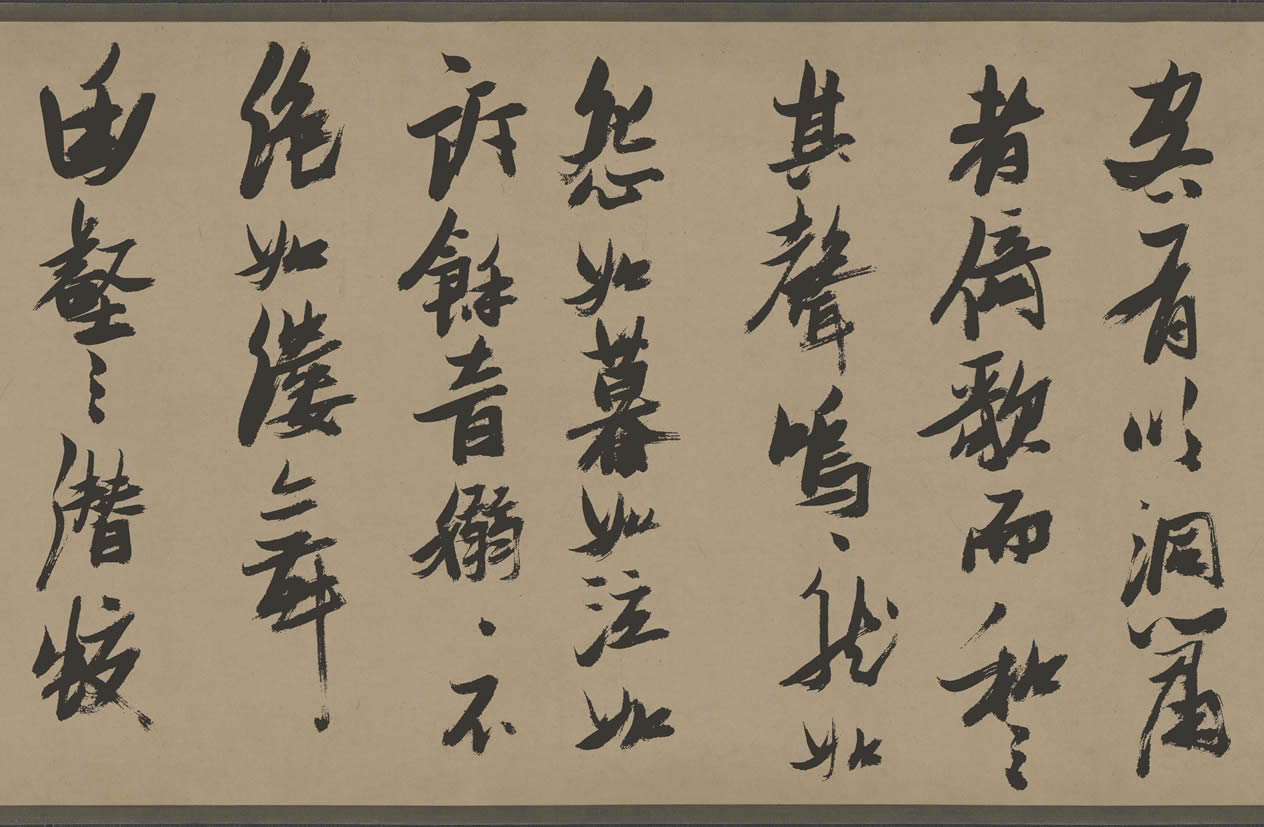 客有吹洞簫
者倚歌而和之
其聲嗚々然如
怨如慕如泣如
訴餘音嫋々不
絶如縷舞
幽壑之潛蛟